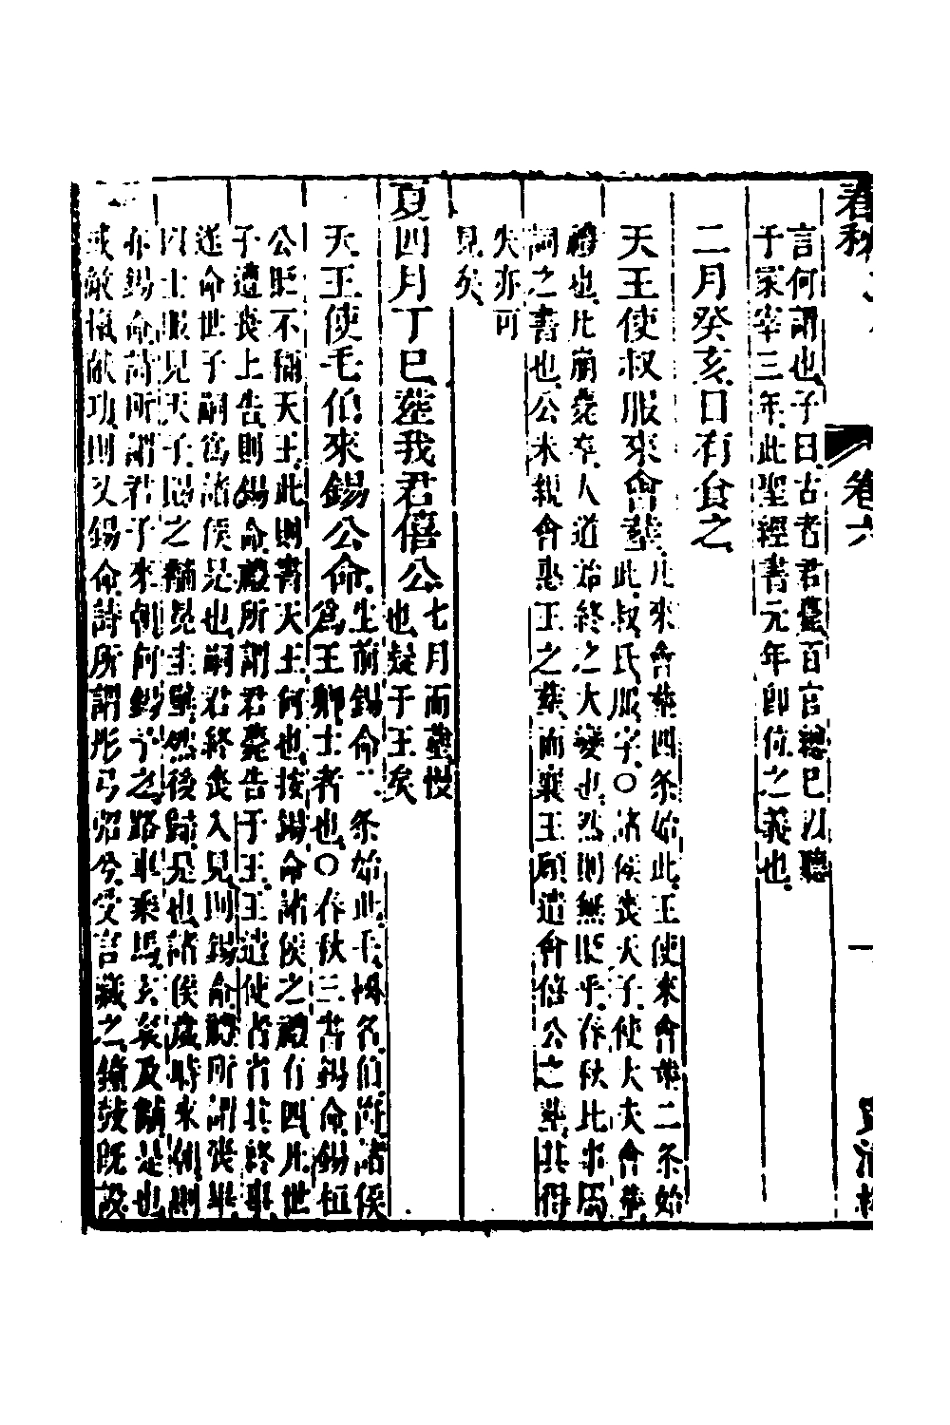 春秋
卷六
言何謂也子曰古者君薨百官總己以聽
于冢宰三年此聖經書元年卽位之義也
二月癸亥日有食之
天王使叔服來會葬
凡來會葬四条始此王使來會葬二条始
此叔氏服字〇諸侯丧天子使大夫會葬
禮也比崩薨卒人道始終之大變也然則無貶乎春秋比事属
詞之書也公未親會惠王之葬而襄王顧遣會僖公之葬其得
失亦可
見矣
夏四月丁巳葬我君僖公
七月而葬慢
也疑于王矣
天王使毛伯來錫公命
生前錫命二条始此毛國名伯爵諸侯
爲王卿士者也〇春秋三書錫命錫桓
公貶不稱天王此則書天王何也按錫命諸侯之禮有四凡世
子遭丧上告則錫命禮所謂君薨告于王王遣使者省其終事
遂命世子嗣爲諸侯是也嗣君終丧入見則錫命禮所謂丧畢
以士服見天子賜之黼冕圭璧然後歸是也諸侯歲時來朝則
亦錫命詩所謂君子來朝何錫予之路車乘馬玄衮及黼是也
或敵愾献功則又錫命詩所謂彤弓弨兮受言藏之鐘鼓既設